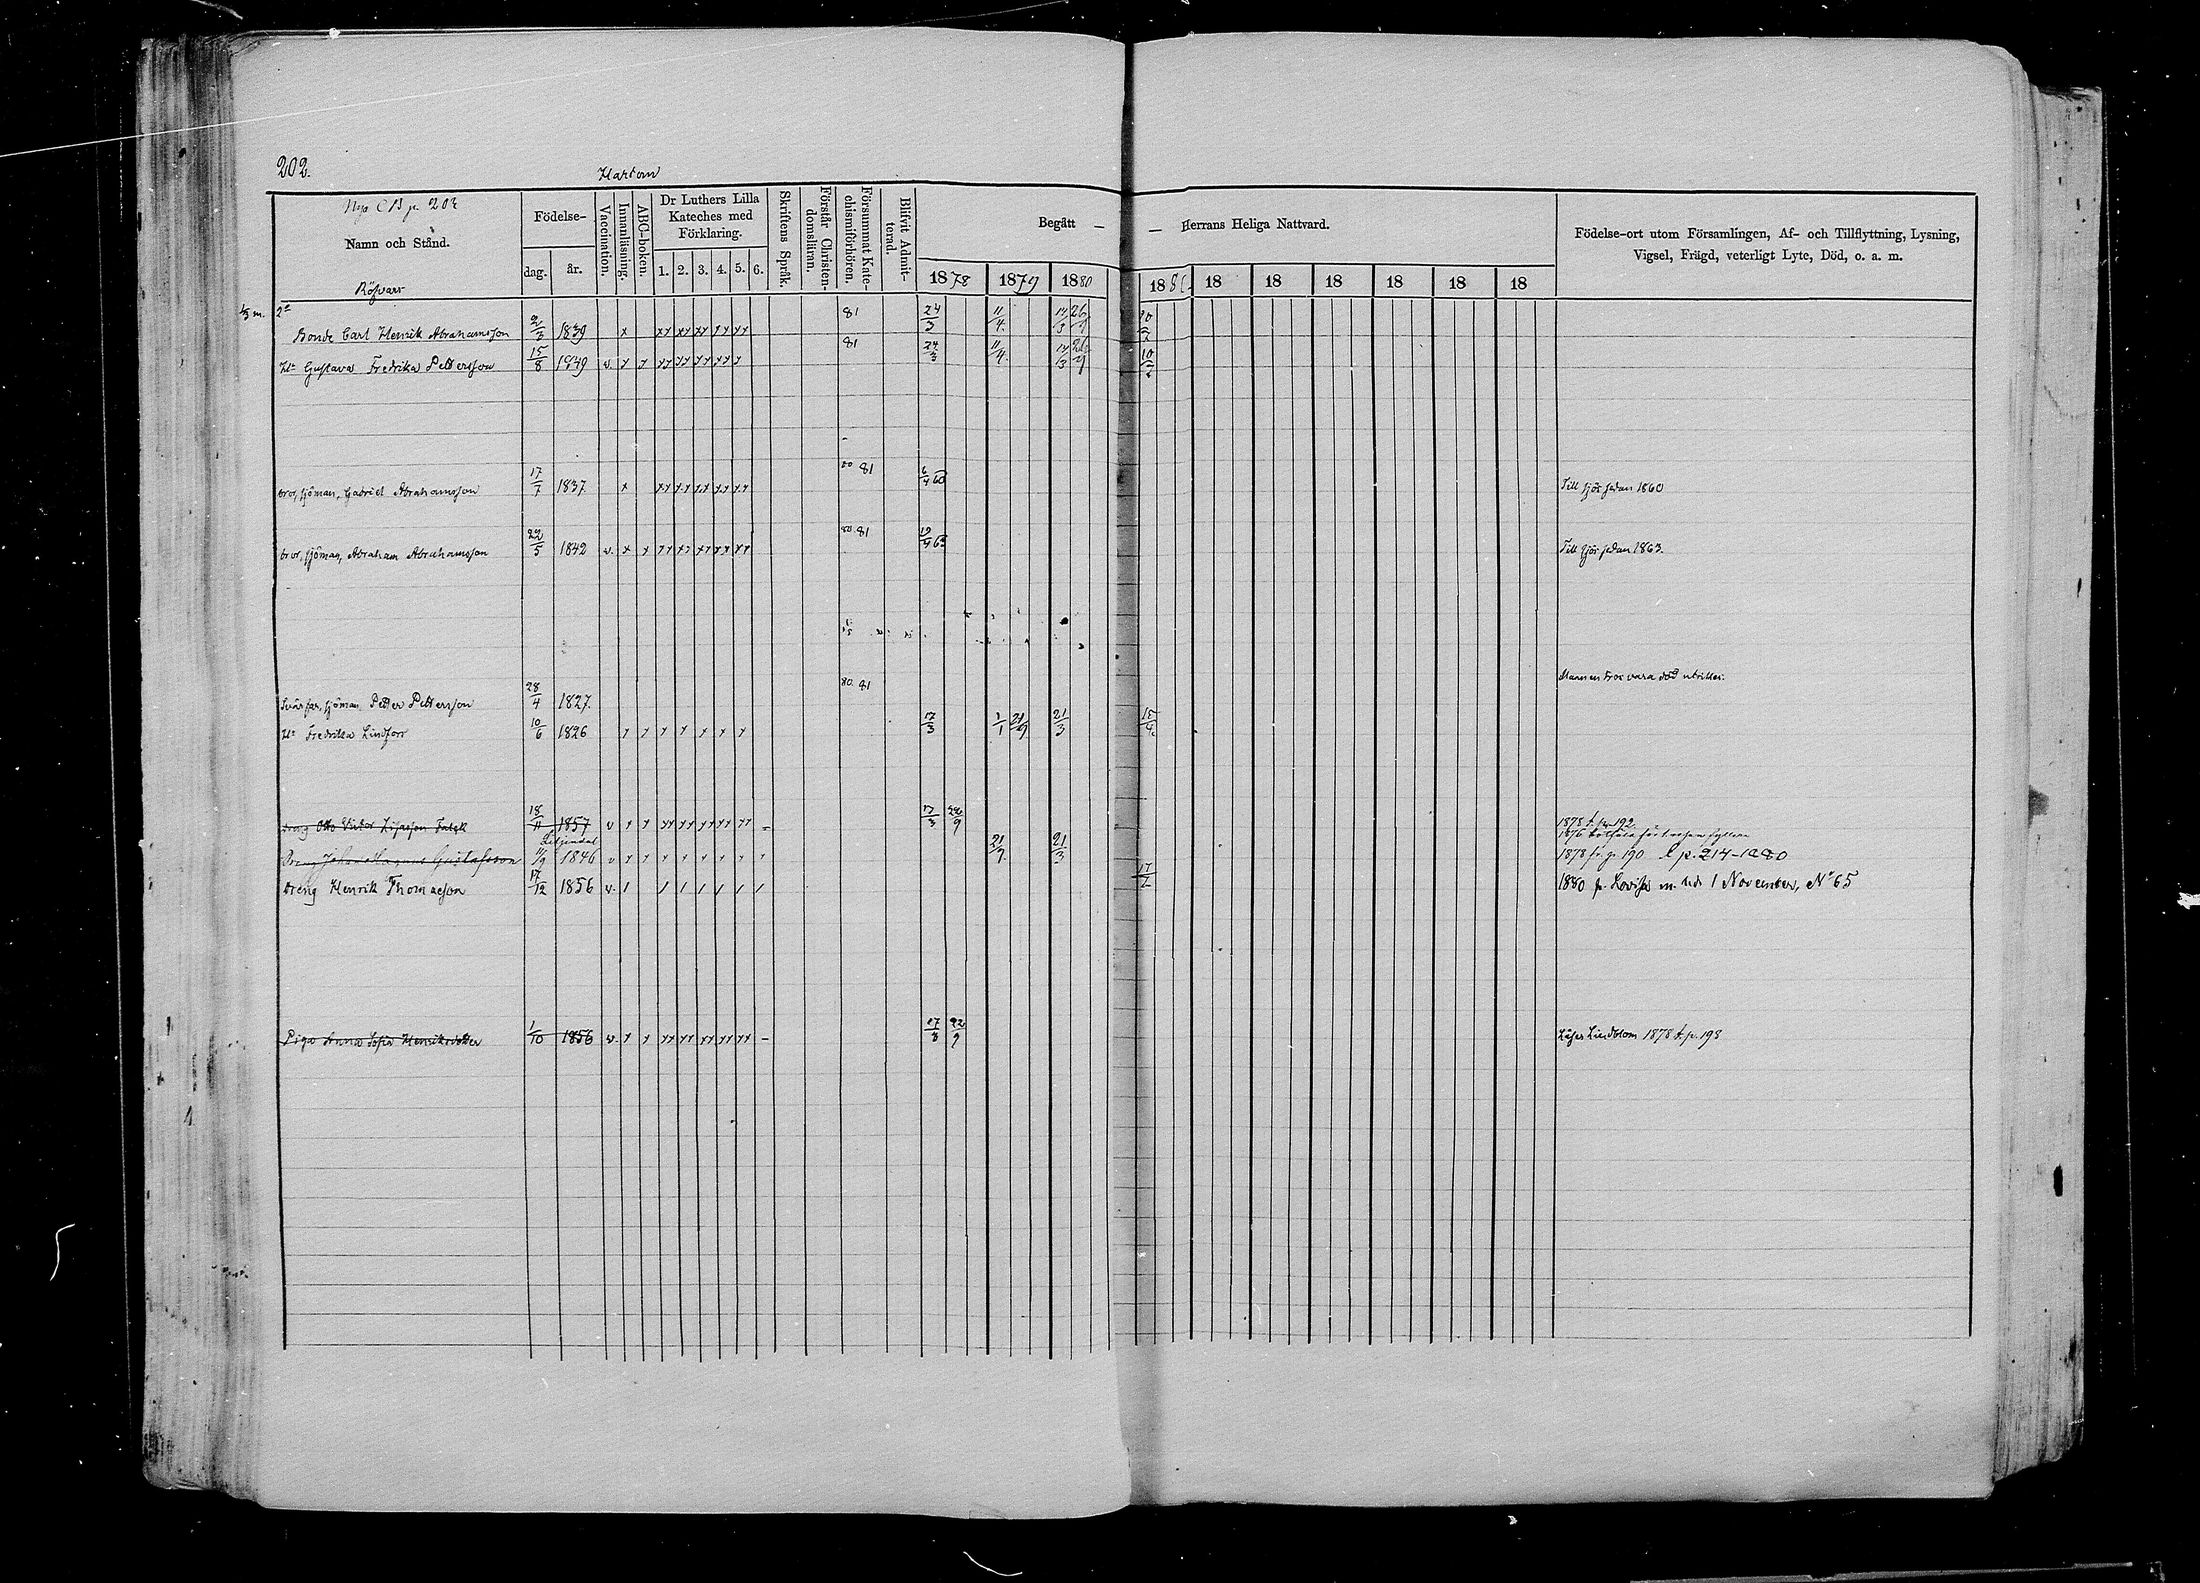 202.
Hartom
Nya CB p. 202
Namn och Stånd.
Födelse-
dag.
år.
Vaccination.
Innanläsning.
ABC-boken.
Dr Luthers Lilla
Kateches med
Förklaring.
1. 2. 3. 4. 5. 6.
Skriftens Språk.
Förstår Christen-
domsläran.
Försummat Kate-
chismiförhören.
Blifvit Admit-
terad.
Begått —
— Herrans Heliga Nattvard.
1878 1879 1880 188 18 18 18 18 18 18
Födelse-ort utom Församlingen, Af- och Tillflyttning, Lysning,
Vigsel, Frägd, veterligt Lyte, Död, o. a. m.
Röfvars
1/3 m.
Bonde Carl Henrik Abrahamsson 2/3 1839 x xx xx xx xx xx 81 24/3 11/4 14/3 26/9
Hu Gustava Fredrika Pettersson 15/8 1849 v. x x xx xx xx xx x 81 24/3 11/4 14/3 26/9 10/2
bror, sjöman, Gabriel Abrahamsson 17/7 1837 x xx xx xx xx xx 80 81 6/4 60 Till sjös sedan 1860
bror, sjöman, Abraham Abrahamsson 22/5 1842 v. x x xx xx xx xx xx 80 81 19/4 63 Till sjös sedan 1863.
Mannen tros vara död utrikes.
Svärfar, sjöman Petter Pettersson 28/4 1827. 80. 81
Hu Fredrika Lindfors 10/6 1826 x x x x x x x 17/3 1/1 21/9 21/3 15/4
dreng Otto Victor Falck 18/11 1857 v x x xx xx xx xx xx – 17/3 22/9 1878 t. p. 192.
1876
Liljendal
Dreng Johan Magnus Gustafsson 11/9 1846 v x x x x x x x x 21/9 21/3 1878 fr. p. 190 t. p. 214–1880
dreng Henrik Thomasson 17/12 1856 v. / / / / / / / 17/2 1880 fr. Lovisa m. bet. 1 November, No 65
Piga Anna Sofia Henriksdotter 1/10 1856 v. x x xx xx xx xx xx – 17/3 22/9 Läser Lindblom 1878 t. p. 193